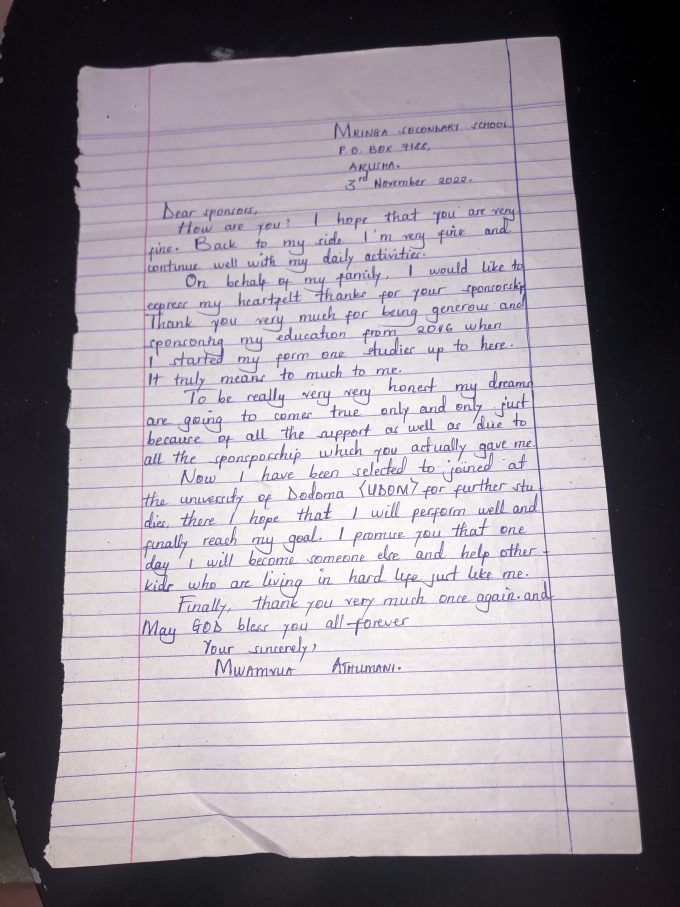 MRINGA SECONDARY SCHOOL,
P.O. BOX
ARUSHA.
3rd November 2022.
Dear sponsors,
How are you? I hope that you are very
fine. Back to my side I'm very fine and
continue well with my daily activities.
On behalf of my family, I would like to
express my heartfelt thanks for your sponsorship
Thank you very much for being generous and
sponsoring my education from 2016 when
I started my form one studies up to here.
It truly means to much to me.
To be really very very honest my dreams
are going to comes true only and only just
because of all the support as well as due to
all the sponsporship which you actually gave me.
Now I have been selected to joined at
the university of Dodoma (UDOM) for further stu
dies, there I hope that I will perform well and
finally reach my goal. I promise you that one
day I will become someone else and help other
kids who are living in hard life just like me.
Finally, thank you very much once again. and
May GOD bless you all forever
Your sincerely,
ATHUMANI.